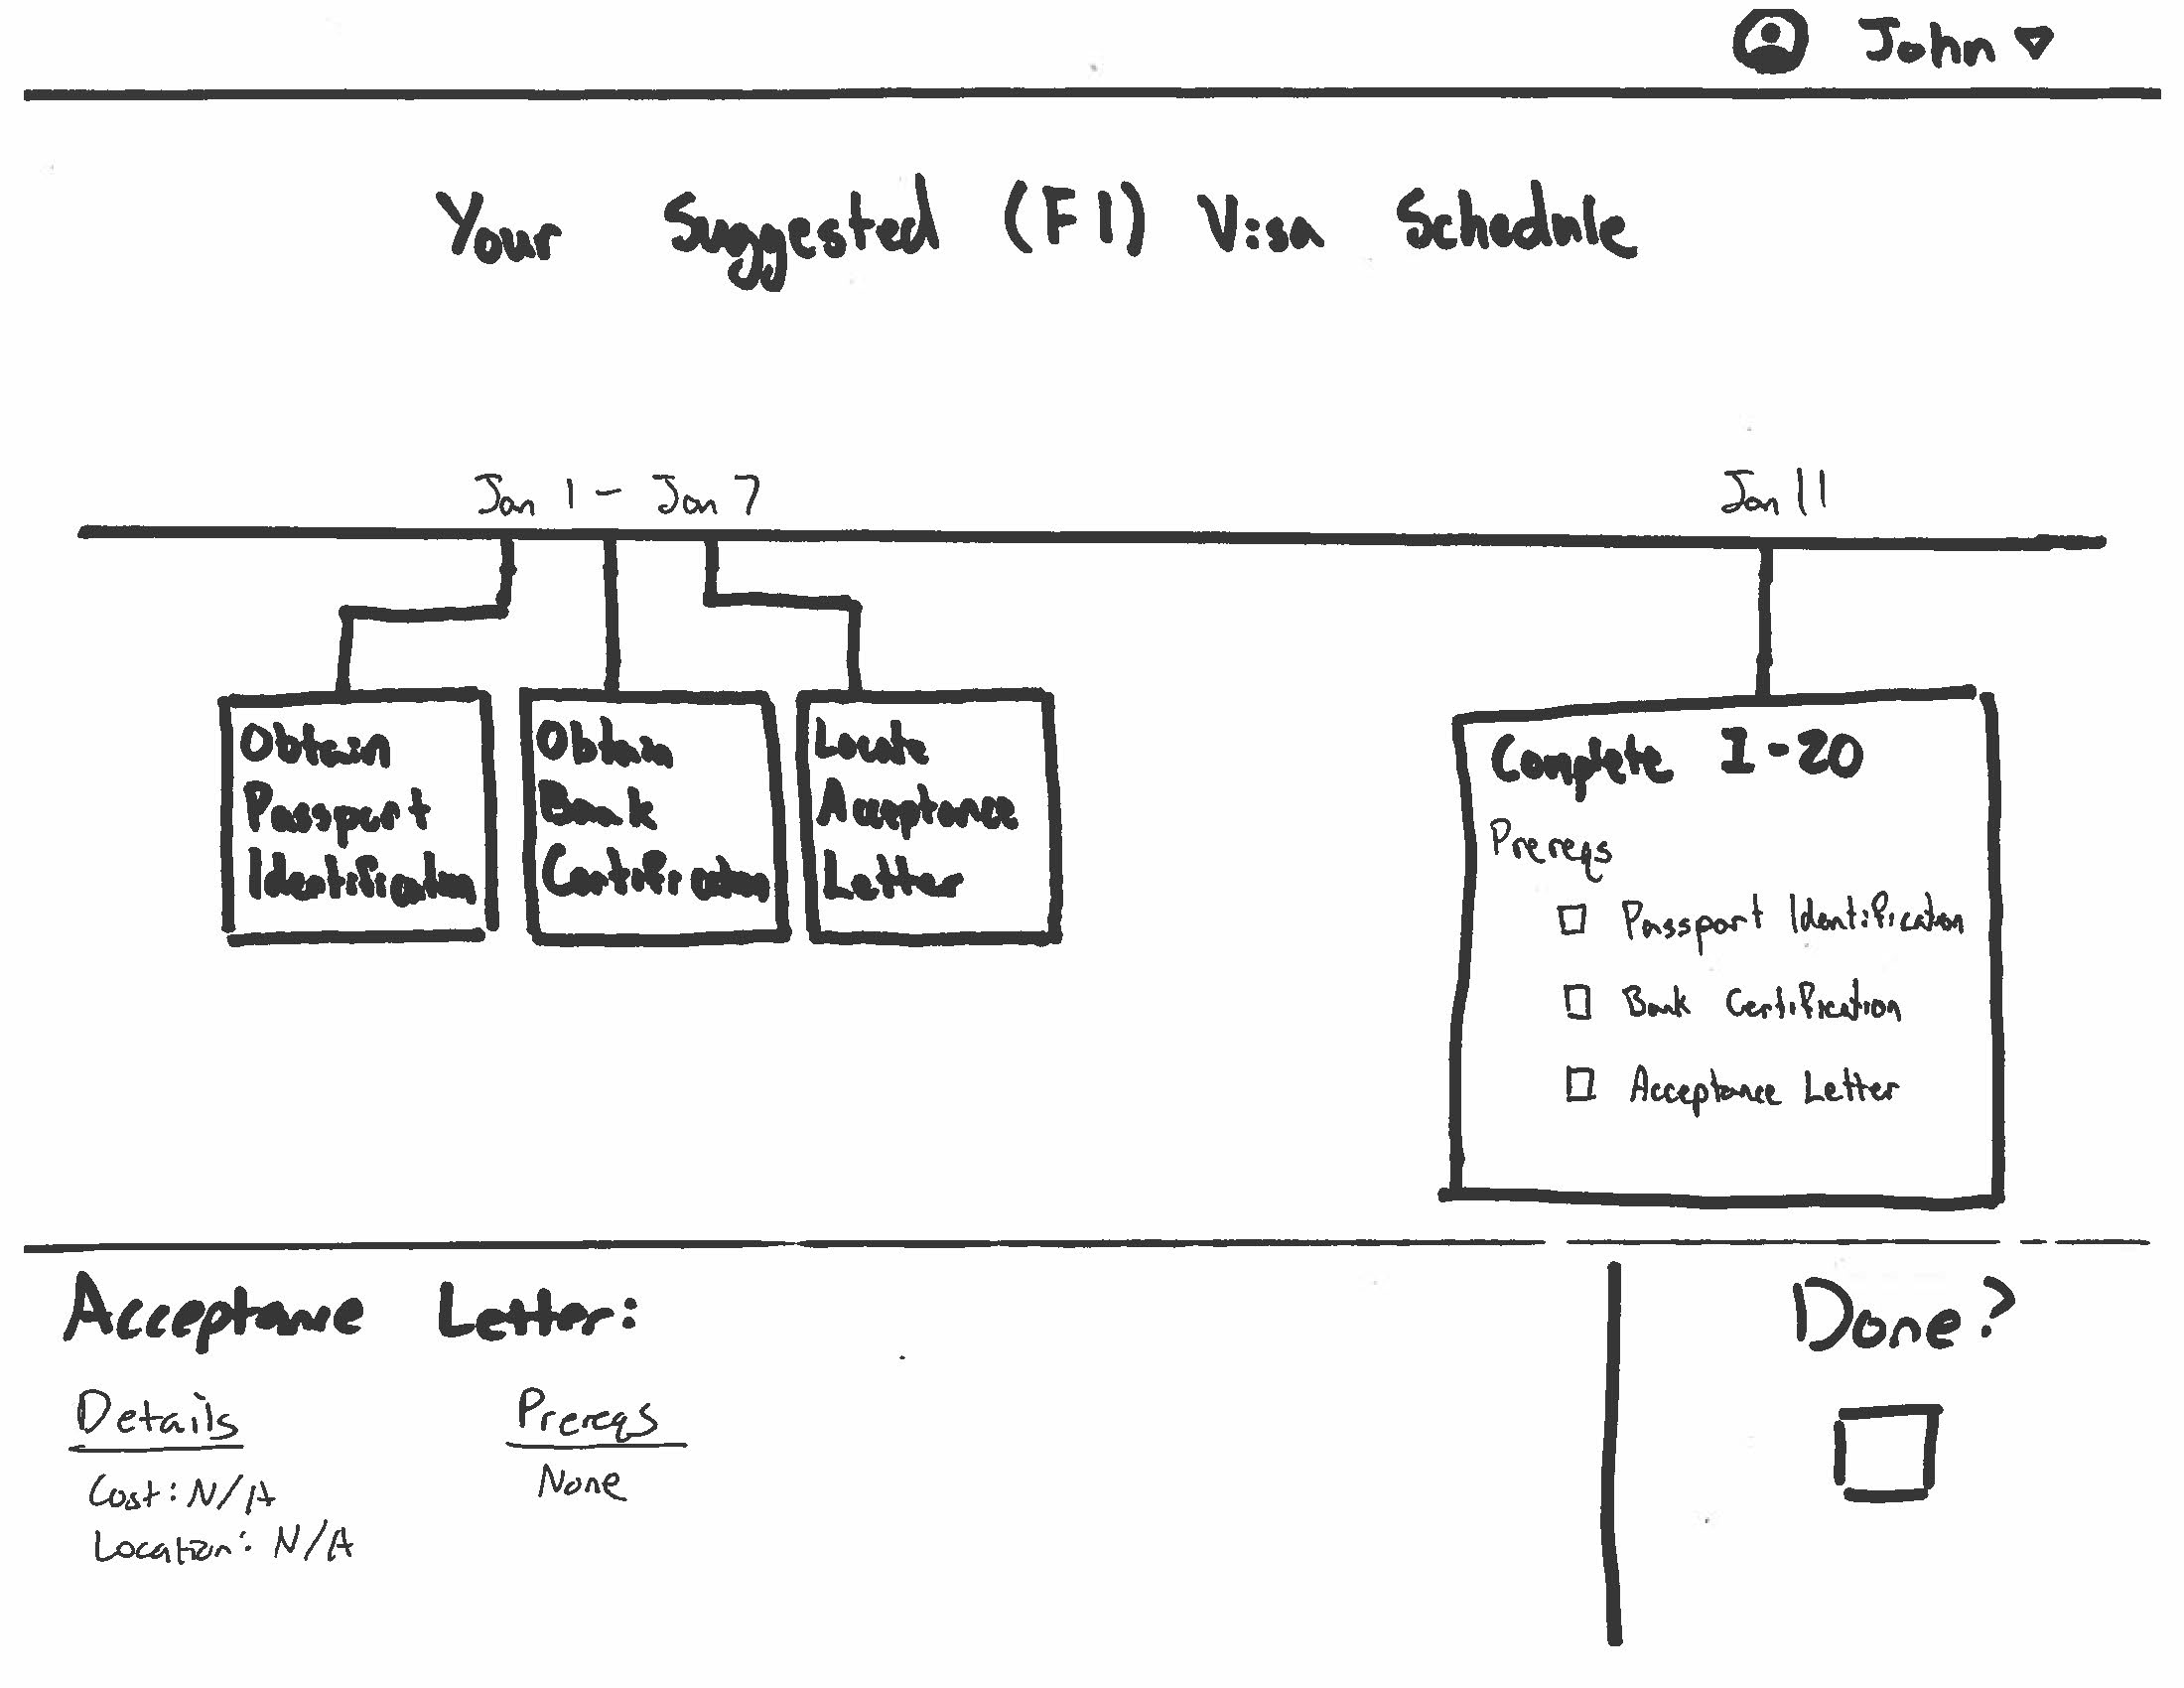 John
Your Suggested (F1) Visa Schedule
Jan 1 - Jan 7
Jan 11
Obtain
Passport
Identification
Obtain
Bank
Certification
Locate
Acceptance
Letter
Complete I-20
Prereqs
Passport Identification
Bank Certification
Acceptance Letter
Acceptance Letter:
Details
Cost: N/A
Location: N/A
Prereqs
None
Done?